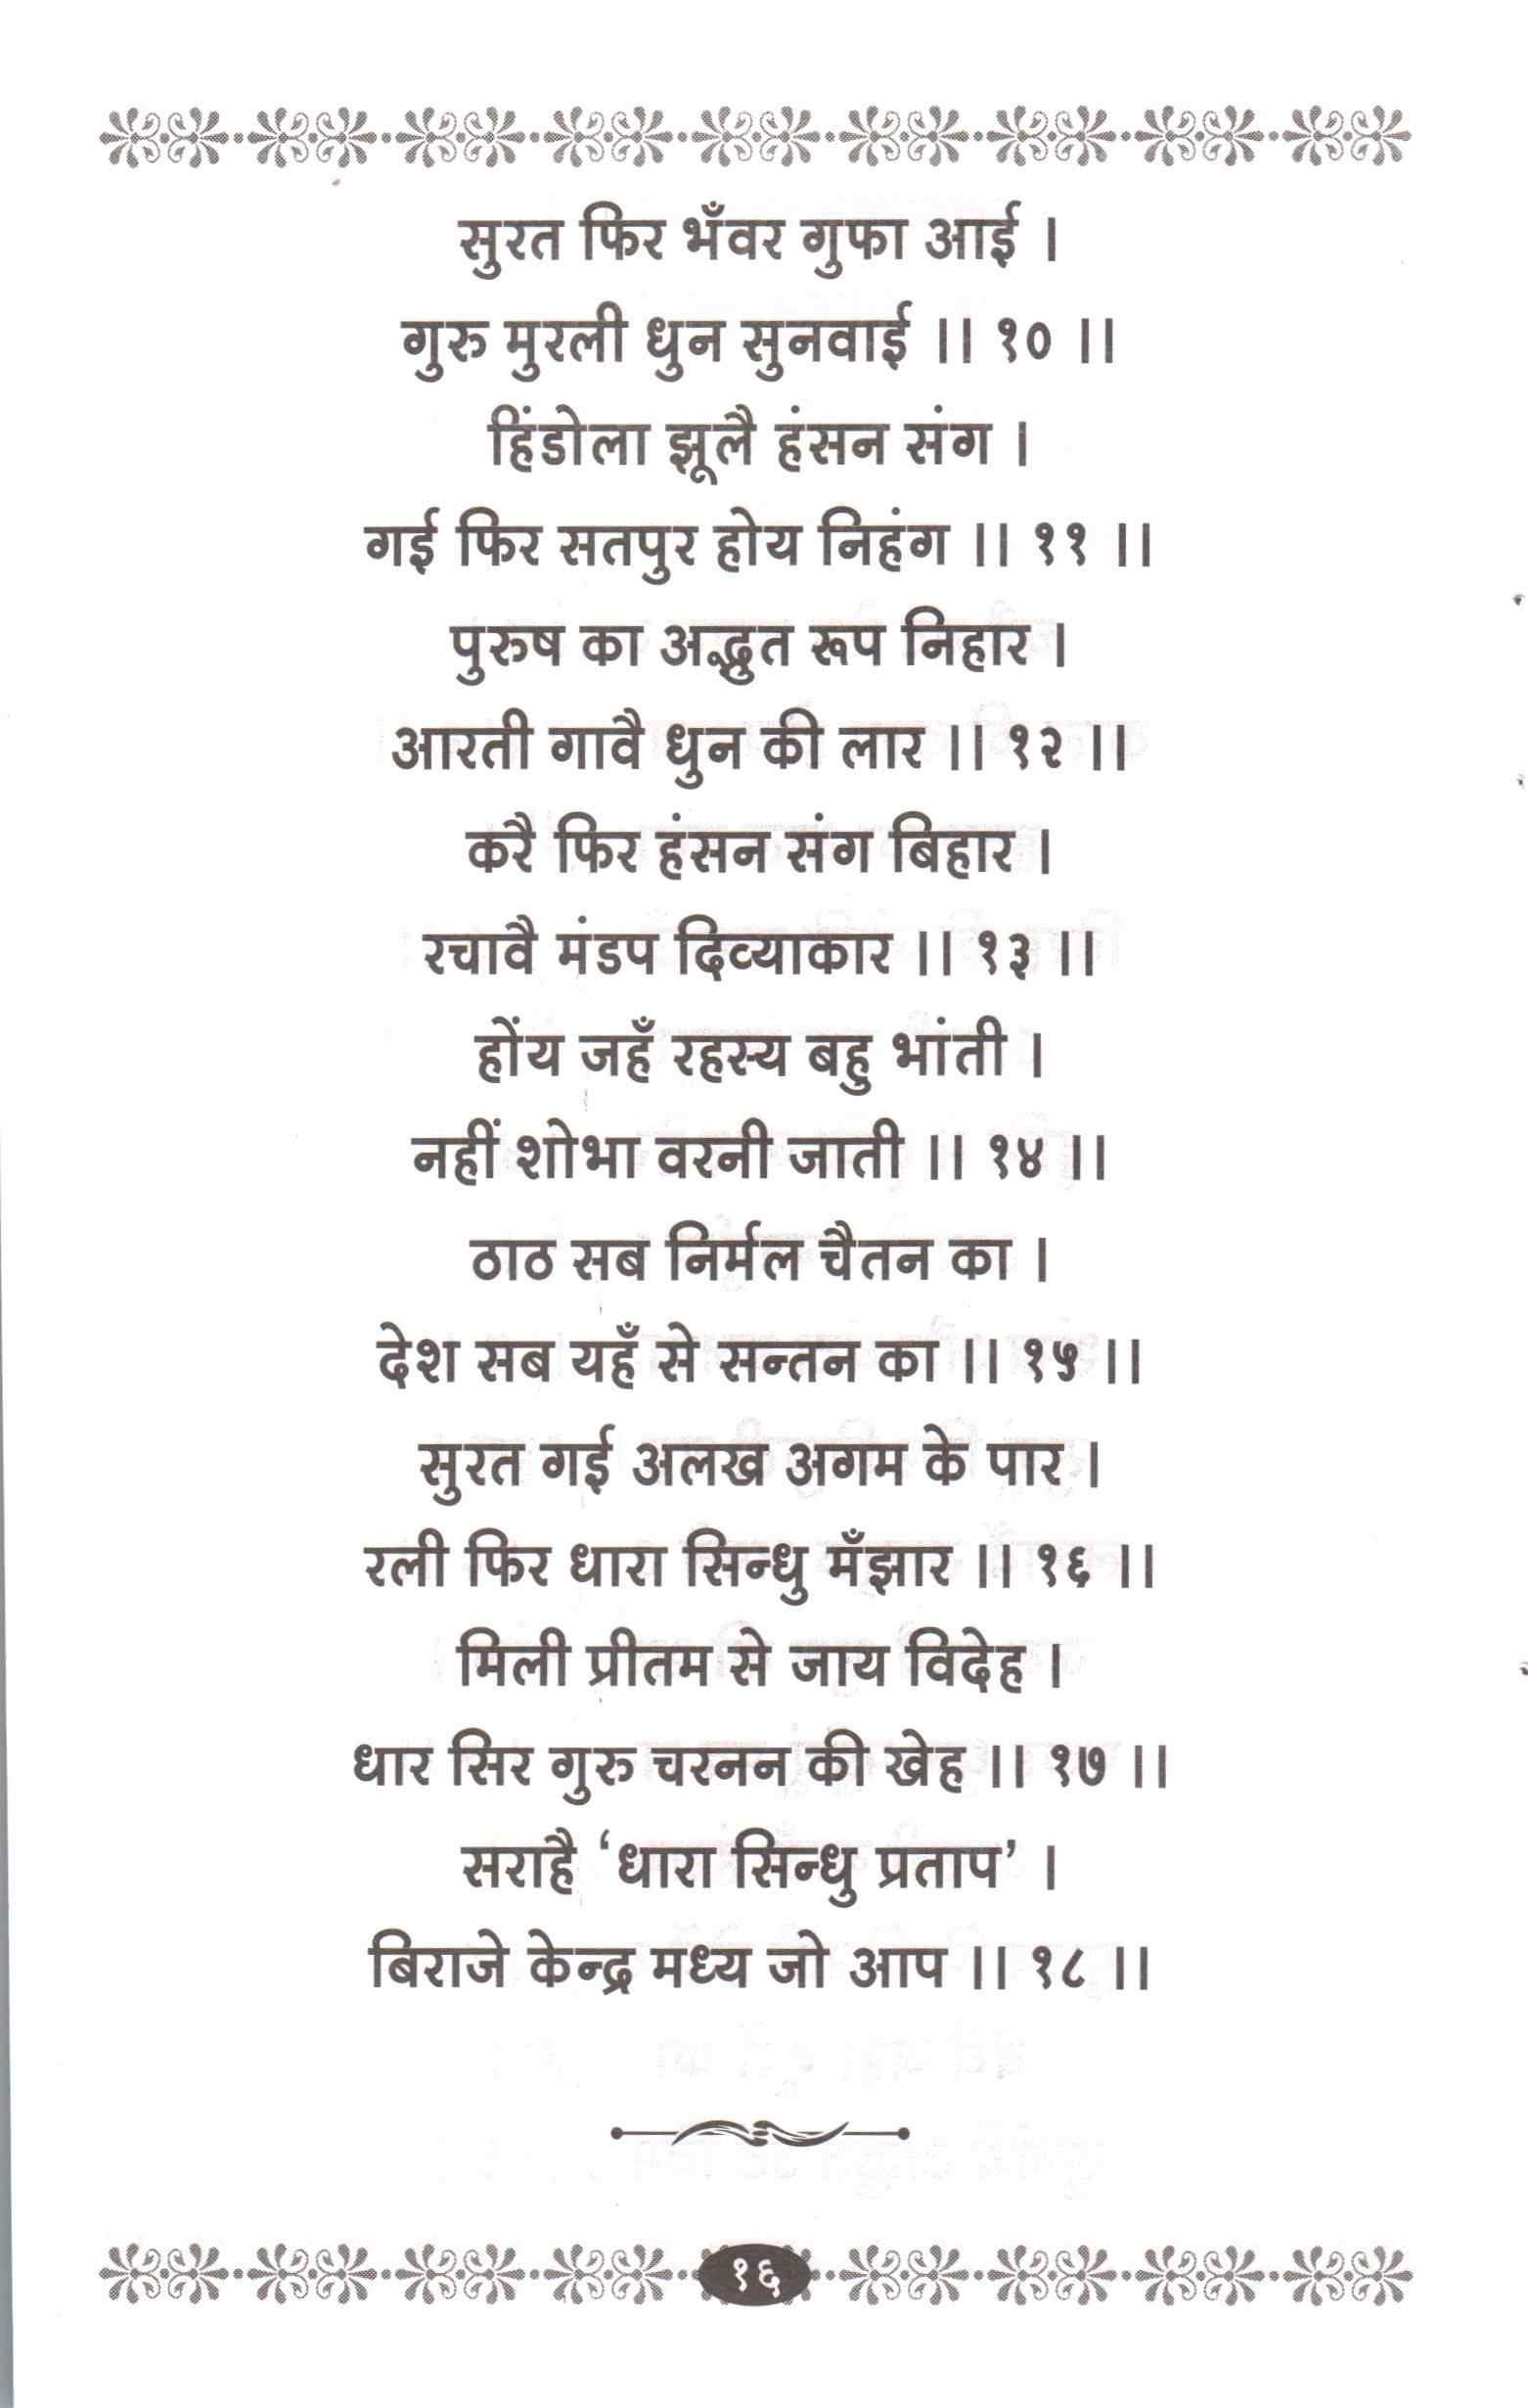 सुरत फिर भँवर गुफा आई ।
गुरु मुरली धुन सुनवाई ।। १० ।।
हिंडोला झूलै हंसन संग ।
गई फिर सतपुर होय निहंग ।। ११ ।।
पुरुष का अद्भुत रूप निहार ।
आरती गावै धुन की लार ।। १२ ।।
करै फिर हंसन संग बिहार ।
रचावै मंडप दिव्याकार ।। १३ ।।
होंय जहँ रहस्य बहु भांती ।
नहीं शोभा वरनी जाती ।। १४ ।।
ठाठ सब निर्मल चैतन का ।
देश सब यहँ से सन्तन का ।। १५ ।।
सुरत गई अलख अगम के पार ।
रली फिर धारा सिन्धु मँझार ।। १६ ।।
मिली प्रीतम से जाय विदेह ।
धार सिर गुरु चरनन की खेह ।। १७ ।।
सराहै ‘धारा सिन्धु प्रताप’ ।
बिराजे केन्द्र मध्य जो आप ।। १८ ।।
१६